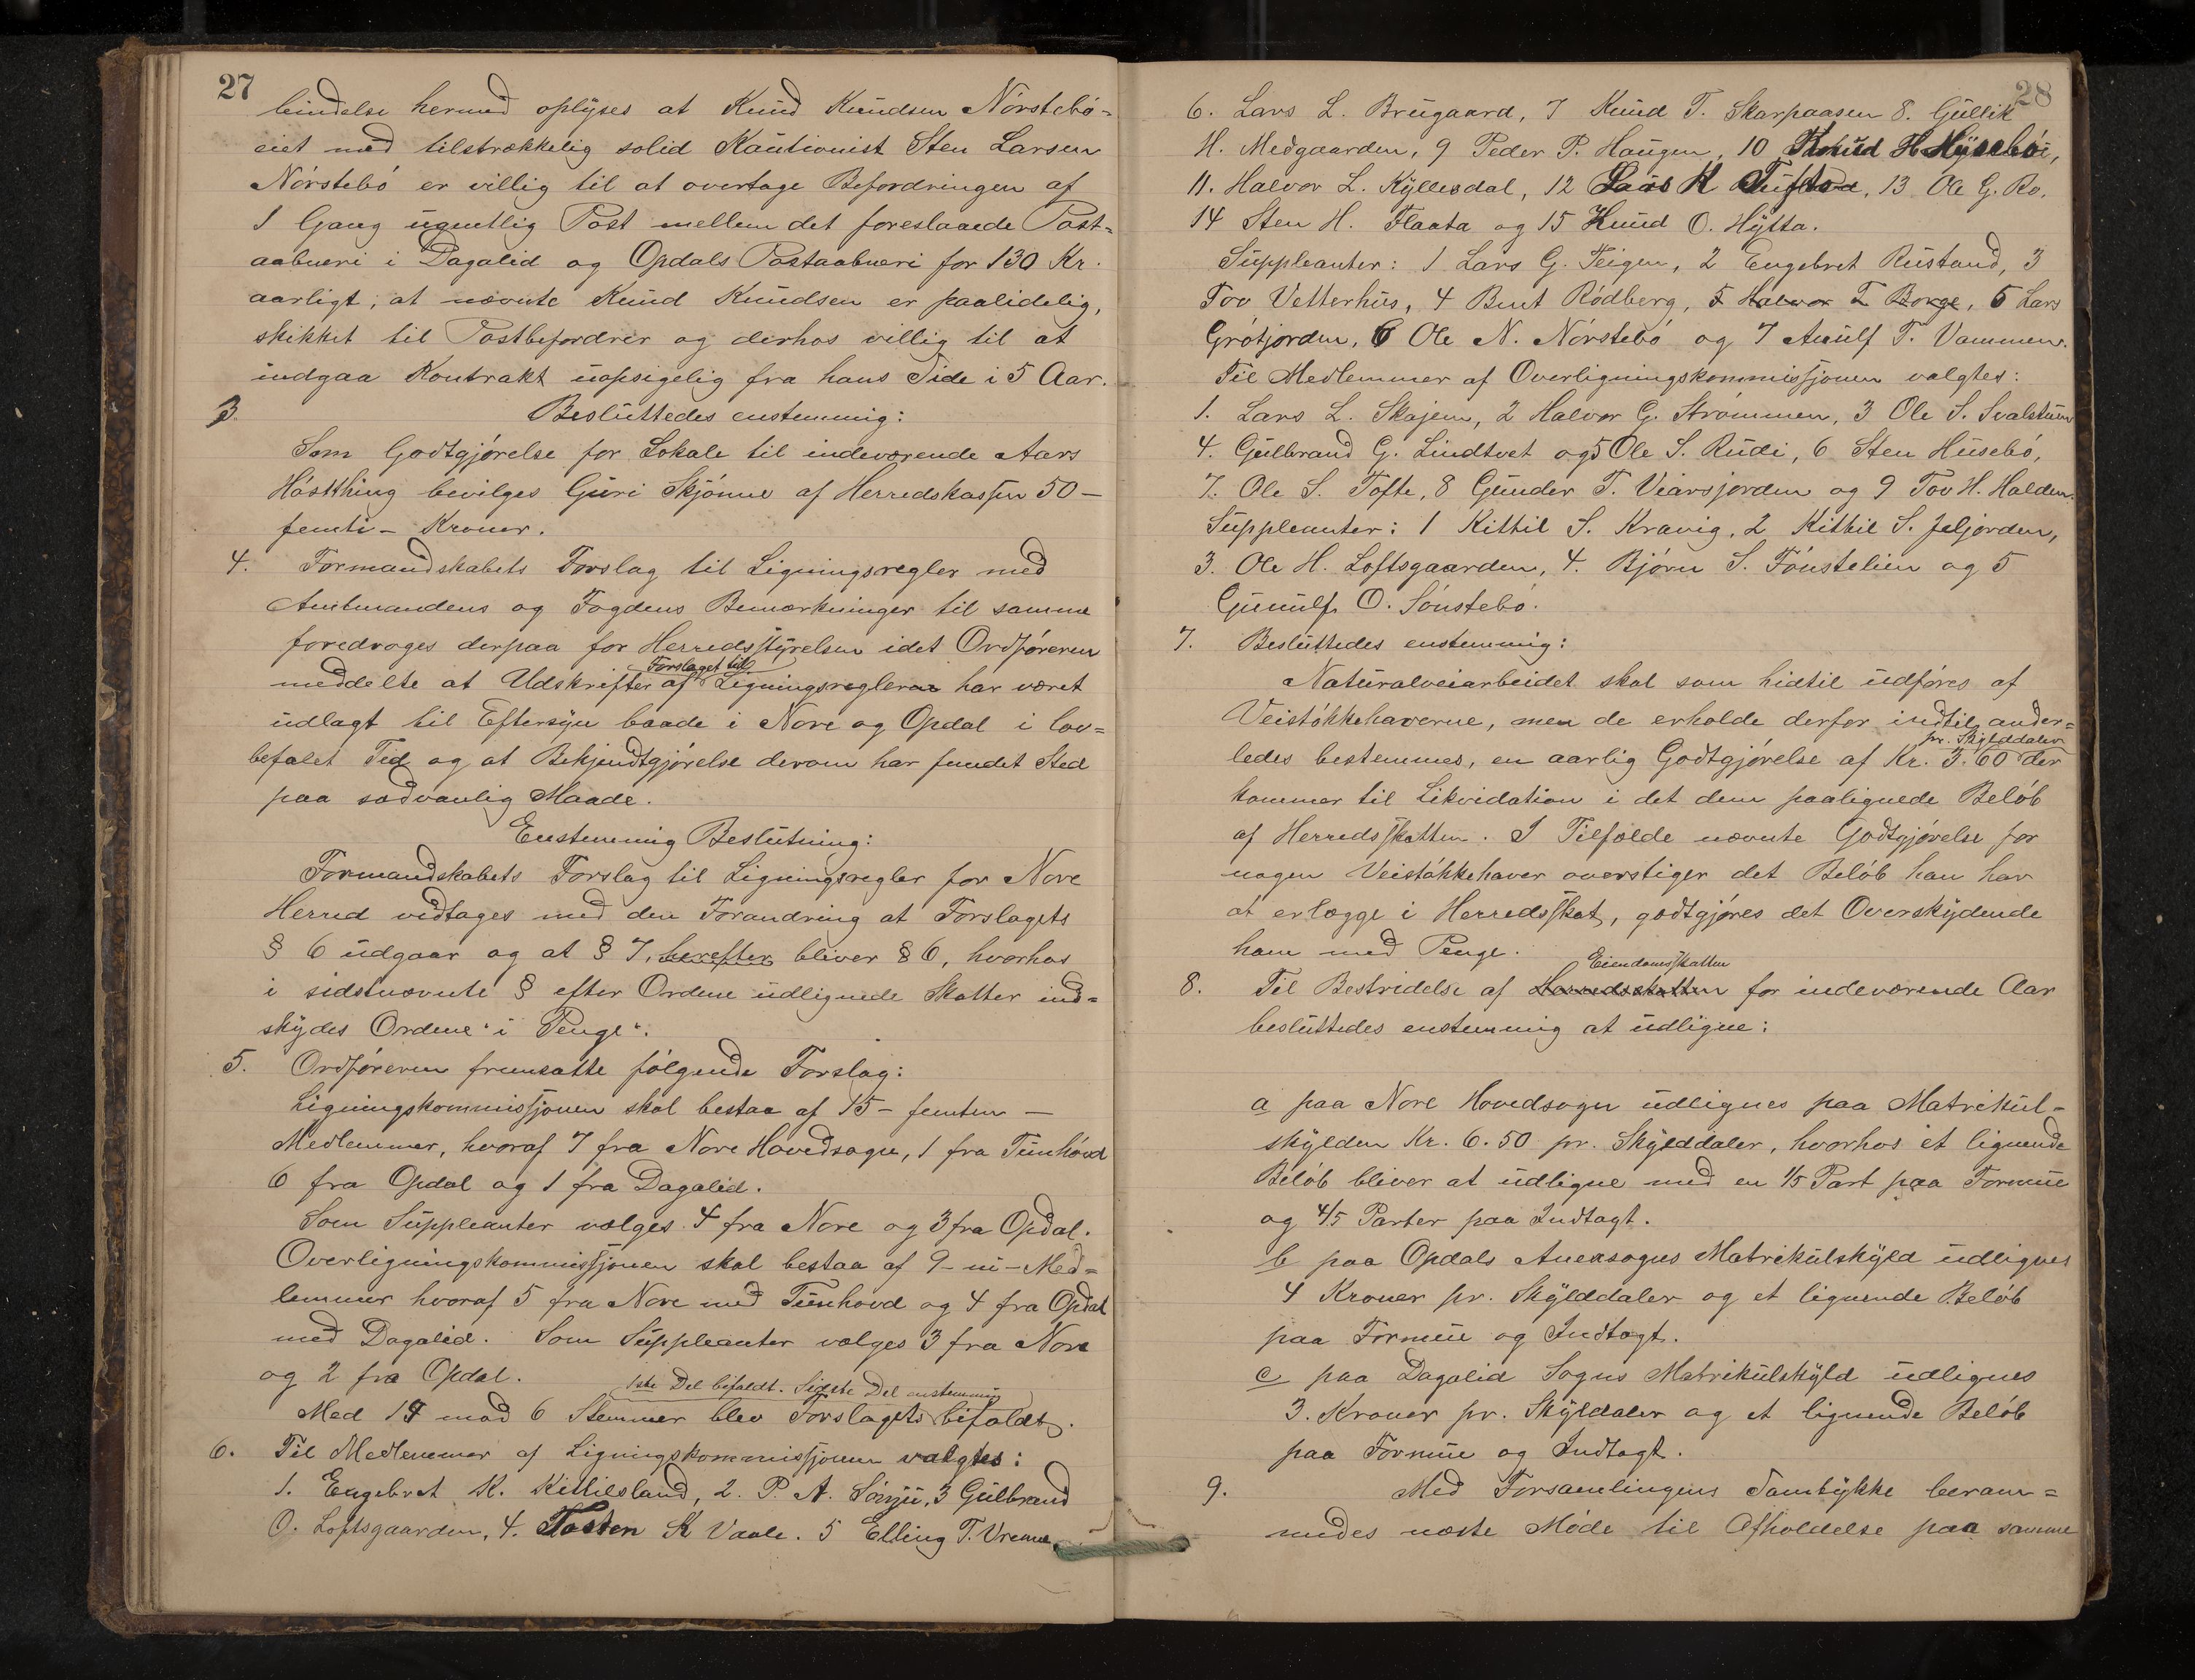 27
bindelse hermed oplyses at Knud Knudsen Nørstebø-
eiet med tilstrækkelig solid Kautionist Sten Larsen
Nørstebø er villig til at overtage Befordringen af
1 Gang ugentlig Post mellem det foreslaaede Post-
aabneri i Dagalid og Opdals Postaabneri for 130 Kr.
aarligt, at nævnte Knud Knudsen er paalidelig,
skikket til Postbefordrer og derhos villig til at
indgaa Kontrakt uopsigelig fra hans Side i 5 Aar.
3. Besluttedes enstemmig:
Som Godtgjørelse for Lokale til indeværende Aars
Høstthing bevilges Guri Skjønne af Herredskassen 50 -
femti - Kroner.
4. Formandskabets Forslag til Ligningsregler med
Amtmandens og Fogdens Bemærkninger til samme
foredroges derpaa for Herredsstyrelsen idet Ordføreren
Forslaget til
meddelte at Udskrifter af Ligningsreglerne har været
udlagt til Eftersyn baade i Nore og Opdal i lov-
befalet Tid og at Bekjendtgjørelse derom har fundet Sted
paa sædvanlig Maade.
Enstemmig Beslutning:
Formandskabets Forslag til Ligningsregler for Nore
Herred vedtages med den Forandring at Forslagets
§ 6 udgaar og at § 7, herefter bliver § 6, hvorhos
i sidstnævnte § efter Ordene udlignede Skatter ind-
skydes Ordene "i Penge".
5. Ordføreren fremsatte følgende Forslag:
Ligningskommissjonen skal bestaa af 15 - femten -
Medlemmer, hvoraf 7 fra Nore Hovedsogn, 1 fra Tunhovd
6 fra Opdal og 1 fra Dagalid.
Som Suppleanter vælges 4 fra Nore og 3 fra Opdal.
Overligningskommissjonen skal bestaa af 9 - ni - Med-
lemmer hvoraf 5 fra Nore med Tunhovd og 4 fra Opdal
med Dagalid. Som Suppleanter vælges 3 fra Nore
og 2 fra Opdal.
1ste Del bifaldt. Sidste Del enstemmig
Med 14 mod 6 Stemmer blev Forslagets bifaldt.
6. Til Medlemmer af Ligningskommissjonen valgtes:
1. Engebret K. Kittilsland, 2. P. A. Sønju, 3 Gulbrand
O. Loftsgaarden, 4. Tosten K Vaale. 5 Elling T. Vrenne
28
6. Lars L. Brugaard, 7 Knud T. Skarpaasen 8. Gullik
H. Medgaarden, 9 Peder P. Haugen, 10 Knud H Husebø,
11. Halvor L. Kyllesdal, 12 Lars K Tufto, 13 Ole G. Ro.
14 Sten H. Flaata og 15 Knud O. Hytta.
Suppleanter: 1 Lars G. Teigen, 2 Engebret Rustand, 3
Tov Vetterhus, 4 Bent Rødberg, 5 Halvor T Borge, 5 Lars
Grøtjorden, 6 Ole N. Nørstebø og 7 Anulf T. Vammen.
Til Medlemmer af Overligningskommissjonen valgtes:
1. Lars L. Skajem, 2 Halvor G. Strømmen, 3 Ole S. Svalstuen
4. Gulbrand G. Lindtvet og 5 Ole S. Rudi, 6 Sten Husebø,
7. Ole S. Tofte, 8 Gunder T. Veiarsjorden og 9 Tov H. Halden.
Suppleanter: 1 Kittil S. Kravig, 2 Kittil S. Juljorden,
3. Ole H. Loftsgaarden, 4. Bjørn S. Fønstelien og 5
Gunulf O. Sønstebø.
7. Besluttedes enstemmig:
Naturalveiarbeidet skal som hidtil udføres af
Veistøkkehaverne, men de erholde derfor indtil ander-
pr. Skylddaler
ledes bestemmes, en aarlig Godtgjørelse af Kr. 3.60 der
kommer til Likvidation i det dem paalignede Beløb
af Herredsskatten. I Tilfælde nævnte Godtgjørelse for
nogen Veistøkkehaver overstiger det Beløb han har
at erlægge i Herredsskat, godtgjøres det Overskydende
ham med Penge.
Eiendomsskatten
8. Til Bestridelse af Herredsskatten for indeværende Aar
besluttedes enstemmig at udligne:
a paa Nore Hovedsogn udlignes paa Matrikul-
skylden Kr. 6.50 pr. Skylddaler, hvorhos et lignende
Beløb bliver at udligne med en 1/5 Part paa Formue
og 4/5 Parter paa Indtægt.
b paa Opdals Anexsogns Matrikulskyld udlignes
4 Kroner pr. Skylddaler og et lignende Beløb
paa Formue og Indtægt.
c paa Dagalid Sogns Matrikulskyld udlignes
3. Kroner pr. Skyldaler og et lignende Beløb
paa Formue og Indtægt.
9. Med Forsamlingens Samtykke beram-
medes næste Møde til Afholdelse paa samme